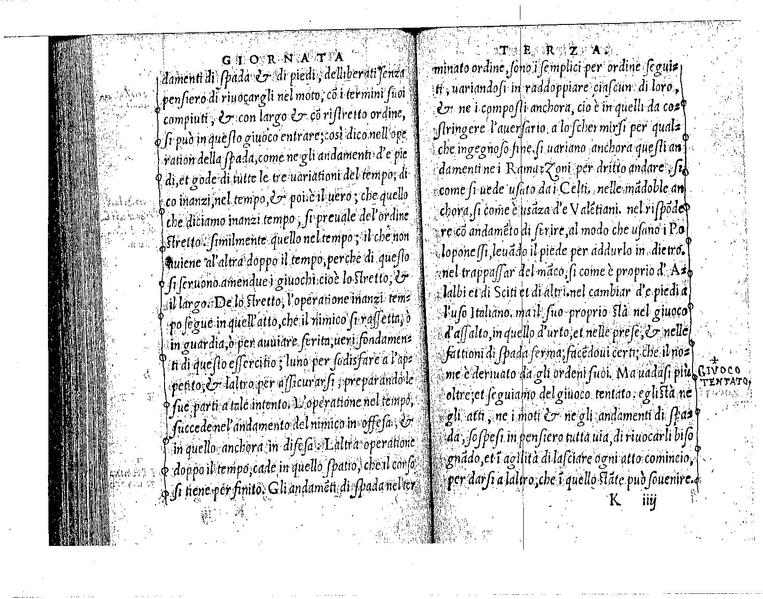 GIORNATA
damenti di spada & di piedi, delliberati senza
pensiero di rivocargli nel moto, cõ i termini suoi
compiuti, & con largo & cõ ristretto ordine,
si può in questo giuoco entrare; così dico nell'ope
ration della spada, come ne gli andamenti d'e pie
di, et gode di tutte le tre variationi del tempo; di
co inanzi, nel tempo, & poi: è il vero; che quello
che diciamo inanzi tempo, si prevale del'ordine
stretto. similmente quello nel tempo; il che non
aviene al'altra doppo il tempo, perche di questo
si servono amendue i giuochi: cioè lo stretto, &
il largo. De lo stretto, l'operatione inanzi tem-
po segue in quell'atto, che il nimico si rassetta, ò
in guardia, ò per aviare ferita, veri fondamen-
ti di questo essercitio; l'uno per sodisfare a l'ap-
petito, & laltro per assicurarsi; preparando le
sue parti a tale intento. L'operatione nel tempo,
succede nel'andamento del nimico in offesa, &
in quello anchora in difesa: L'altra operatione
doppo il tempo, cade in quello spatio, che al corso
si tiene per finito. Gli andamẽti di spada nel ter
TERZA.
minato ordine, sono i semplici per ordine segui-
ti, variandosi in raddoppiare ciascun di loro,
& ne i composti anchora, cio è in quelli da co-
stringere l'aversario. a lo schermirsi per qual-
che ingegnoso fine. si variano anchora questi an
damenti ne i Ramazzoni per dritto andare, si
come si vede usato da i Celti. nelle mãdoble an
chora, si come è usãza d'e Valẽtiani. nel rispõde
re cõ andamẽto di ferire, al modo che usano i Po
loponessi, levãdo il piede per addurlo in dietro.
nel trappassar del mãco, si come è proprio d' A-
lalbi et di Sciti et di altri. nel cambiar d'e piedi a
l'uso Italiano. ma il suo proprio stà nel giuoco
d'assalto, in quello d'urto, et nelle prese, & nelle
fattioni di spada ferma; facẽdovi certi; che il no-
me è derivato da gli ordeni suoi. Ma vadasi più
oltre; et seguiamo del giuoco tentato. egli stà ne
gli atti, ne i moti & ne gli andamenti di spa-
da, sospesi in pensiero tutta via, di rivocarli biso
gnãdo, et ĩ agilità di lasciare ogni atto comincio,
per darsi a laltro; che ĩ quello state può sovenire.
GIVOCO
TENTATO
K iiij